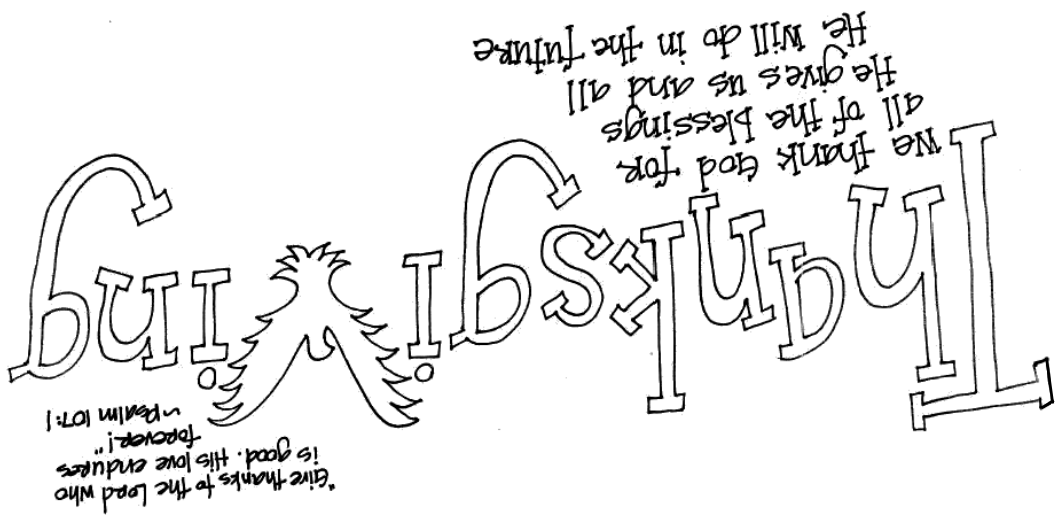 "Give thanks to the Lord who
is good. His love endures
forever!"
~Psalm 107:1
Thanksgiving
We thank God for
all of the blessings
He gives us and all
He will do in the future